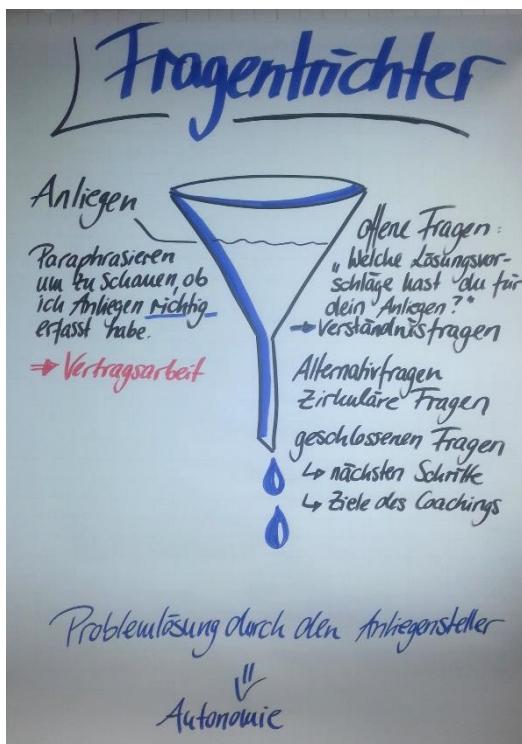 Fragentrichter
Anliegen
Paraphrasieren
um zu schauen, ob
ich Anliegen richtig
erfasst habe.
⇒ Vertragsarbeit
offene Fragen:
„Welche Lösungsvor-
schläge hast du für
dein Anliegen?“
→ Verständnisfragen
Alternativfragen
Zirkuläre Fragen
geschlossenen Fragen
↳ nächsten Schritte
↳ Ziele des Coachings
Problemlösung durch den Anliegensteller
⇓
Autonomie